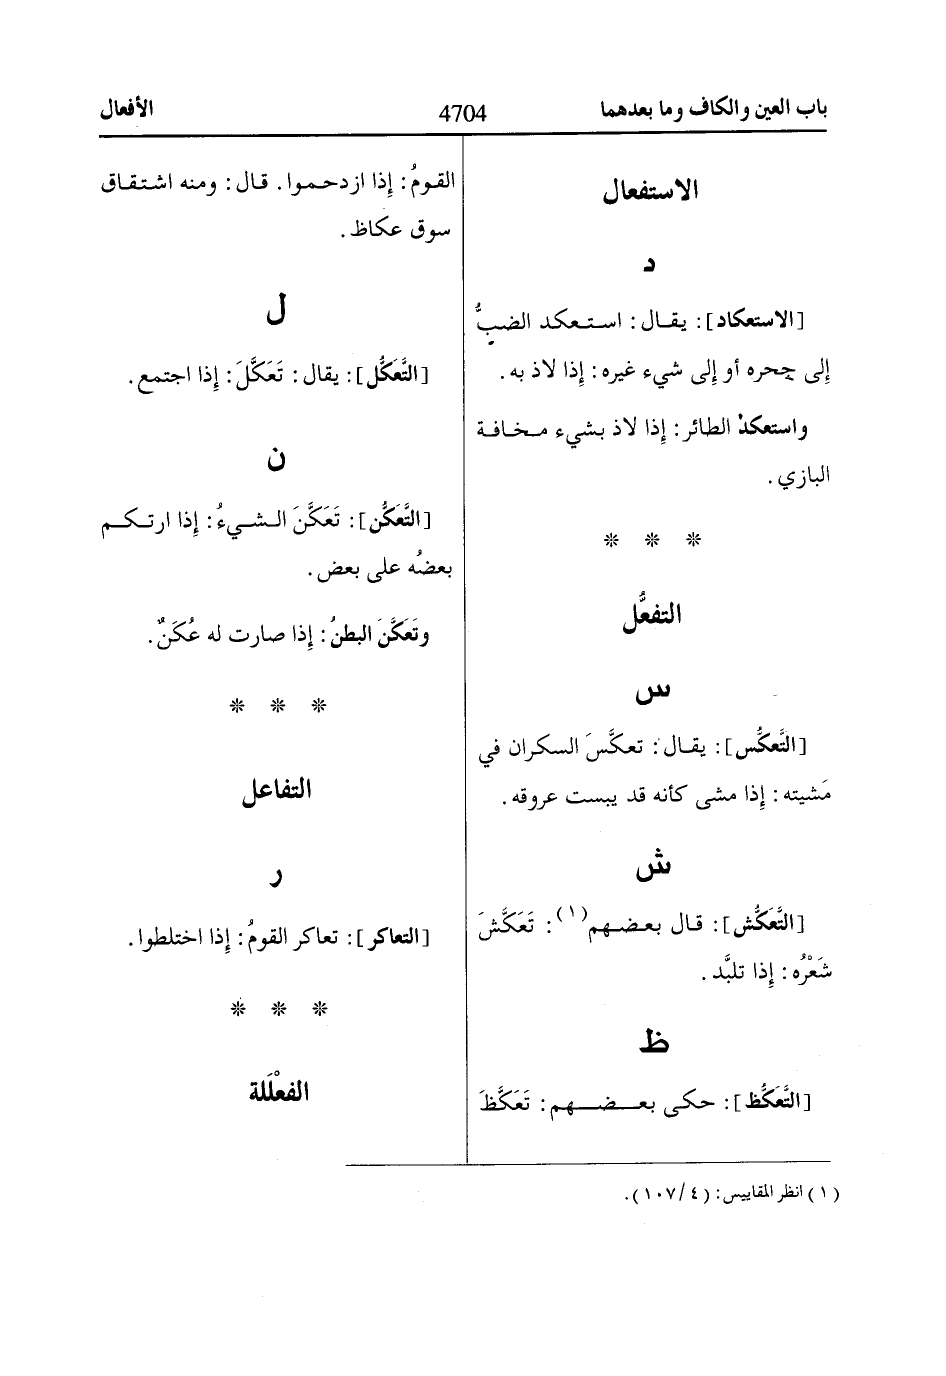 باب العين والكاف وما بعدهما
4704
الأفعال
الاستفعال
د
[الاستعكاد]: يقال: استعكد الضبُّ
إلى جحره أو إلى شيء غيره: إذا لاذ به.
واستعكد الطائر: إذا لاذ بشيء مخافة
البازي.
* * *
التفعُّل
س
[التَّعكُّس]: يقال: تعكَّسَ السكران في
مَشيته: إذا مشى كأنه قد يبست عروقه.
ش
[التَّعَكُّش]: قال بعضهم(١): تَعَكَّشَ
شَعْرُه: إذا تلبَّد.
ظ
[التَّعَكُّظ]: حكى بعضهم: تَعَكَّظَ
القومُ: إذا ازدحموا. قال: ومنه اشتقاق
سوق عكاظ.
ل
[التَّعَكُّل]: يقال: تَعَكَّلَ: إذا اجتمع.
ن
[التَّعَكُّن]: تَعَكَّنَ الشيءُ: إذا ارتكم
بعضُه على بعض.
وتَعَكَّنَ البطنُ: إذا صارت له عُكَنٌ.
* * *
التفاعل
ر
[التعاكر]: تعاكر القومُ: إذا اختلطوا.
* * *
الفعْلَلة
(١) انظر المقاييس: (٤/١٠٧).